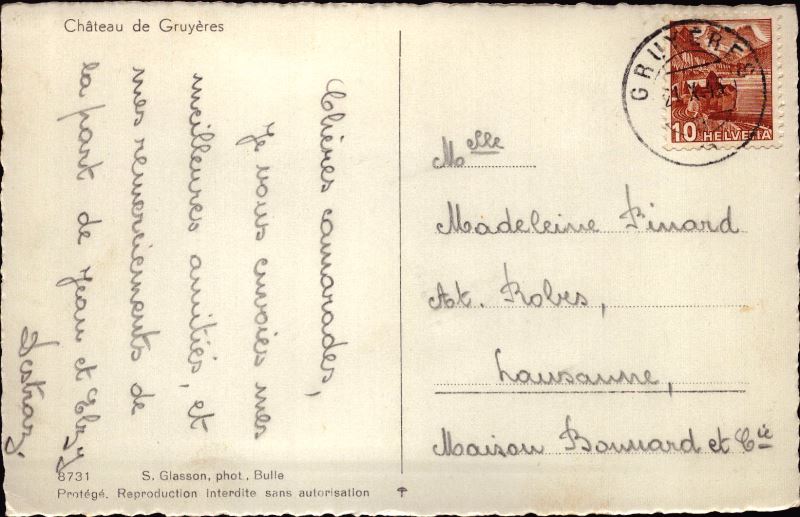 Château de Gruyères
Chères camarades,
Je vous envoies mes
meilleures amitiés, et
mes remerciements de
la part de Jean et
GRUYÈRES
10 HELVETIA
Melle
Madeleine Pinard
At. Robes,
Lausanne,
Maison Bonnard et Cie
8731 S. Glasson, phot., Bulle
Protégé. Reproduction interdite sans autorisation